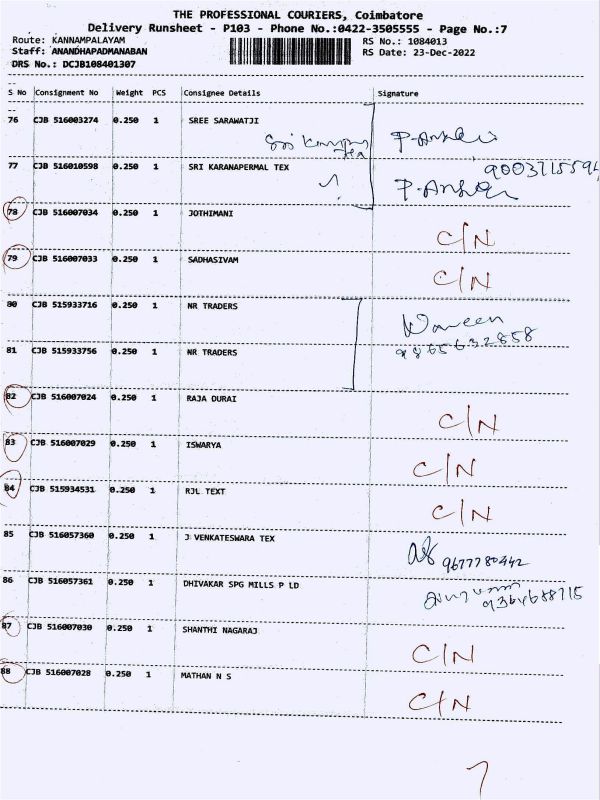 THE PROFESSIONAL COURIERS, Coimbatore
Delivery Runsheet - P103 - Phone No.:0422-3505555 - Page No.:7
Route: KANNAMPALAYAM RS No.: 1084013
Staff: ANANDHAPADMANABAN RS Date: 23-Dec-2022
DRS No.: DCJB108401307
S No Consignment No Weight PCS Consignee Details Signature
76 CJB 516003274 0.250 1 SREE SARAWATJI
77 CJB 516010598 0.250 1 SRI KARANAPERMAL TEX
78 CJB 516007034 0.250 1 JOTHIMANI
C/N
79 CJB 516007033 0.250 1 SADHASIVAM
C/N
80 CJB 515933716 0.250 1 NR TRADERS
Naveen
9865632858
81 CJB 515933756 0.250 1 NR TRADERS
82 CJB 516007024 0.250 1 RAJA DURAI
C/N
83 CJB 516007029 0.250 1 ISWARYA
C/N
84 CJB 515934531 0.250 1 RJL TEXT
C/N
85 CJB 516057360 0.250 1 J VENKATESWARA TEX
9677780442
86 CJB 516057361 0.250 1 DHIVAKAR SPG MILLS P LD
87 CJB 516007030 0.250 1 SHANTHI NAGARAJ
C/N
88 CJB 516007028 0.250 1 MATHAN N S
C/N
7